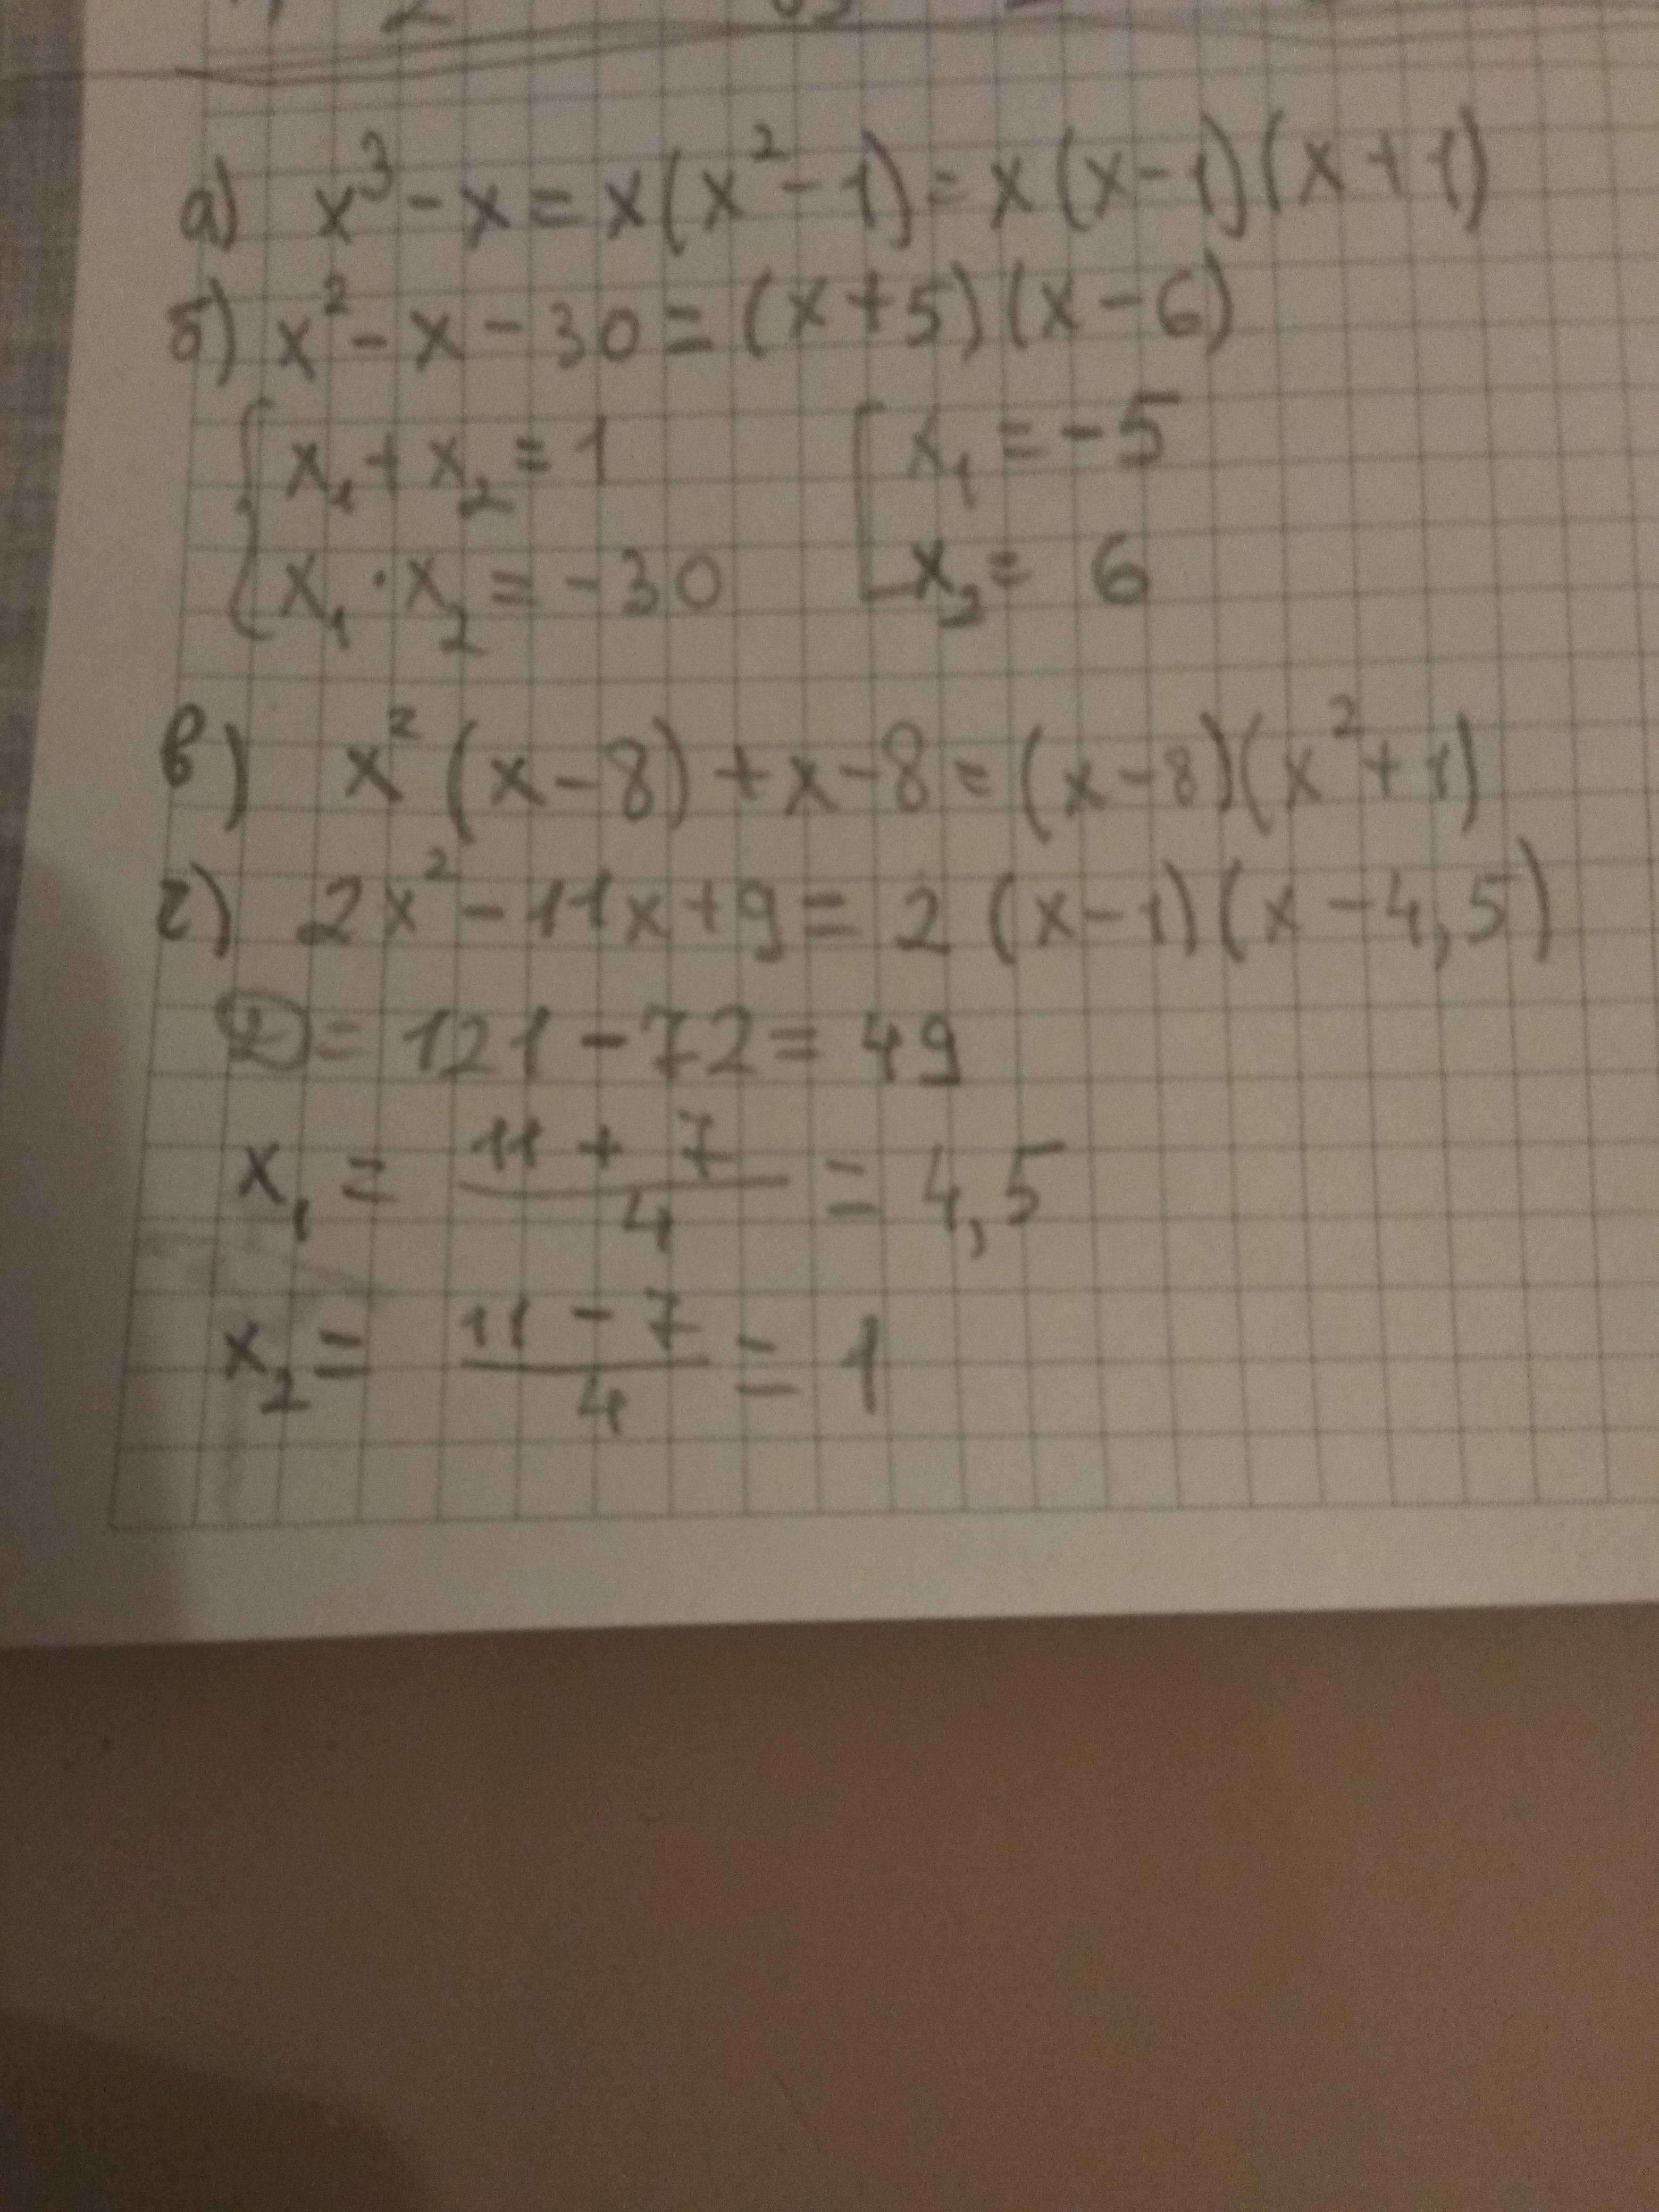 а) x³ - x = x(x² - 1) = x(x - 1)(x + 1)
б) x² - x - 30 = (x + 5)(x - 6)
{ x₁ + x₂ = 1 [ x₁ = -5
{ x₁ · x₂ = -30 [ x₂ = 6
в) x² (x - 8) + x - 8 = (x - 8)(x² + 1)
г) 2x² - 11x + 9 = 2 (x - 1)(x - 4,5)
D = 121 - 72 = 49
x₁ = (11 + 7)/4 = 4,5
x₂ = (11 - 7)/4 = 1